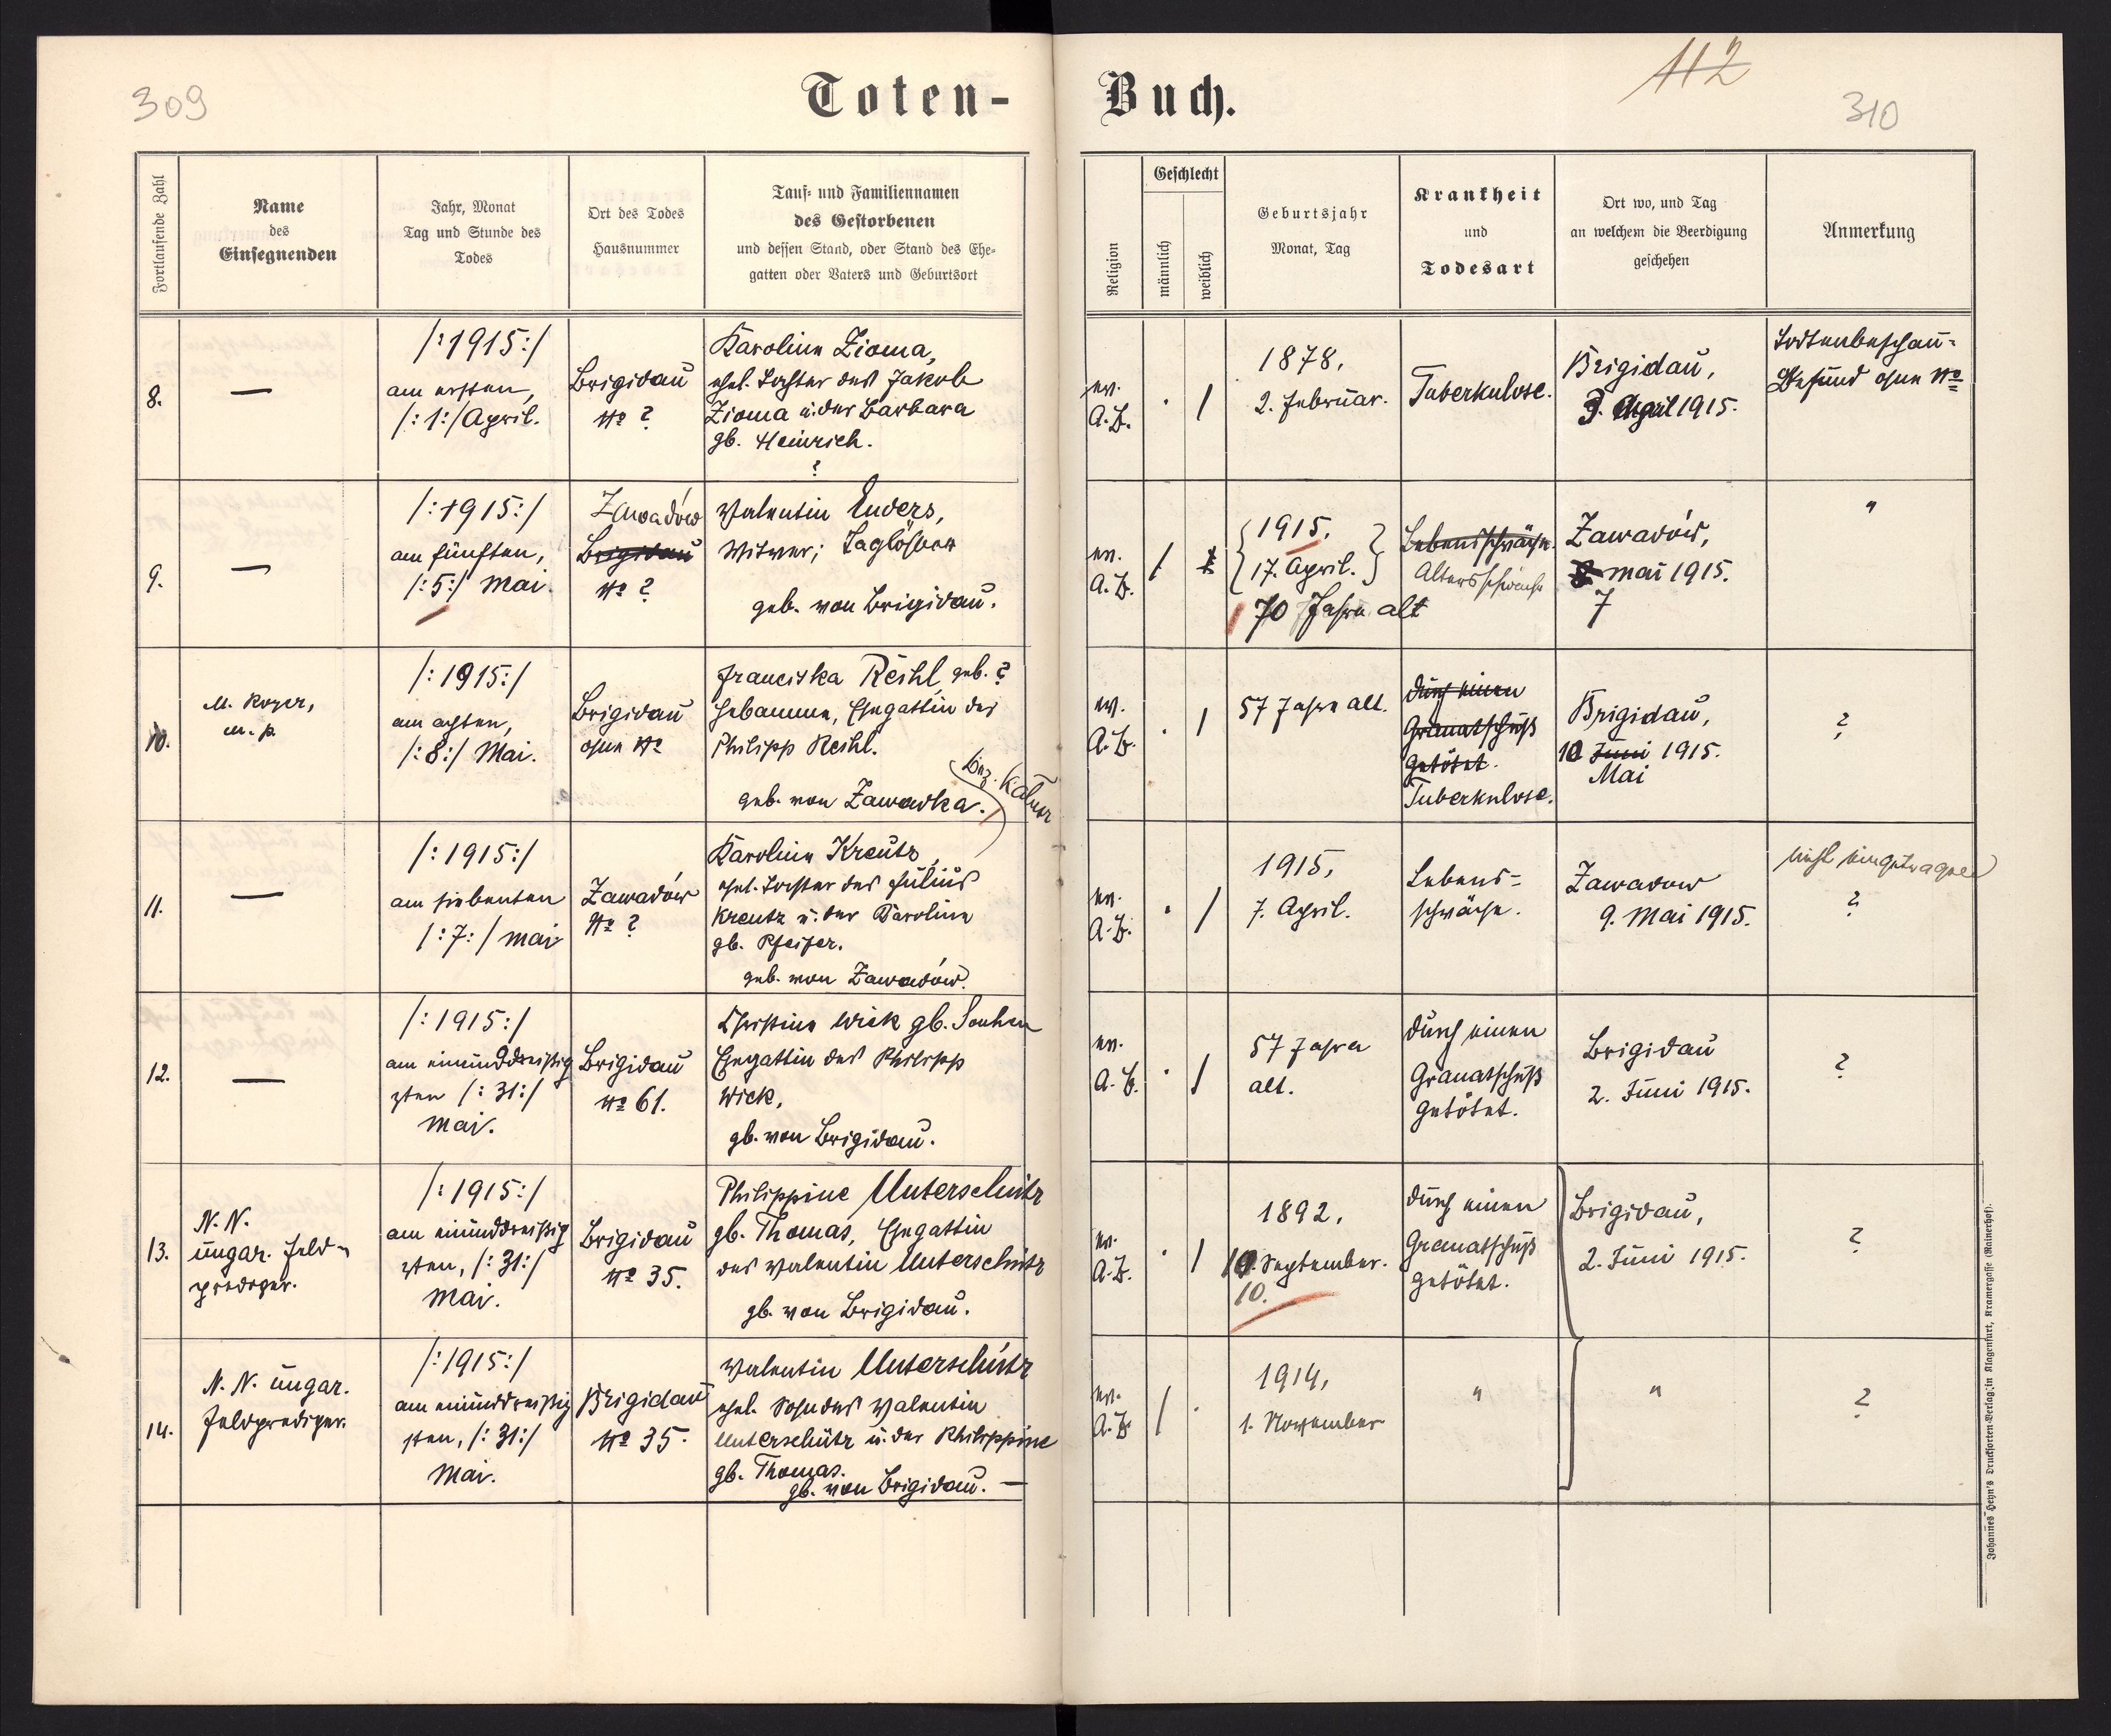 309
Toten-
Buch.
112
310
Fortlaufende Zahl
Name
des
Einsegnenden
Jahr, Monat
Tag und Stunde des
Todes
Ort des Todes
Hausnummer
Tauf- und Familiennamen
des Gestorbenen
und dessen Stand, oder Stand des Ehe-
gatten oder Vaters und Geburtsort
Religion
Geschlecht
männlich
weiblich
Geburtsjahr
Monat, Tag
Krankheit
und
Todesart
Ort wo, und Tag
an welchem die Beerdigung
geschehen
Anmerkung
8.
—
/:1915:/
am ersten,
/:1:/ April.
Brigidau
No ?
Karoline Zioma,
ehel. Tochter des Jakob
Zioma u. der Barbara
gb. Heinrich.
?
ev.
A.B.
. /
1878,
2. Februar.
Tuberkulose.
Brigidau,
3. April 1915.
Todtenbeschau-
Befund ohne No
9.
—
/:1915:/
am fünften,
/:5:/ Mai.
Zawadów
Brigidau
No ?
Valentin Enders,
Witwer; Taglöhner
geb. von Brigidau.
ev.
A.B.
/
1915,
17. April.
70 Jahre alt
Lebensschwäche.
Altersschwäche
Zawadów,
8 Mai 1915.
7
"
10.
M. Royer,
m. p.
/:1915:/
am achten,
/:8:/ Mai.
Brigidau
ohne No
Franciska Reihl, geb. ?
Hebamme, Ehegattin des
Philipp Reihl.
geb. von Zawadka.
bez. Kałusz
ev.
A.B.
. /
57 Jahre alt.
durch einen
Granatschuß
getötet.
Tuberkulose.
Brigidau,
10 Juni 1915.
Mai
?
11.
—
/:1915:/
am siebenten
/:7:/ Mai
Zawadów
No ?
Karoline Kreutz,
ehel. Tochter des Julius
Kreutz u. der Karoline
gb. Pfeifer.
geb. von Zawadów.
ev.
A.B.
. /
1915,
7. April.
Lebens-
schwäche.
Zawadow
9. Mai 1915.
nicht eingetragen
?
12.
—
/:1915:/
am einunddreißig
sten /:31:/
Mai.
Brigidau
No 61.
Christine Wick gb.
Ehegattin des Philipp
Wick,
gb. von Brigidau.
ev.
A.B.
. /
57 Jahre
alt.
durch einen
Granatschuß
getötet.
Brigidau
2. Juni 1915.
?
13.
N. N.
ungar. Feld-
prediger.
/:1915:/
am einunddreißig
sten, /:31:/
Mai.
Brigidau
No 35.
Philippine Unterschütz
gb. Thomas, Ehegattin
des Valentin Unterschütz
gb. von Brigidau.
ev.
A.B.
. /
1892,
September.
10.
durch einen
Granatschuß
getötet.
Brigidau,
2. Juni 1915.
?
14.
N. N. ungar.
Feldprediger.
/:1915:/
am einunddreißig
sten, /:31:/
Mai.
Brigidau
No 35.
Valentin Unterschütz
ehel. Sohn des Valentin
Unterschütz u. der Philippine
gb. Thomas.
gb. von Brigidau. —
ev.
A.B.
/ .
1914,
1. November
"
"
?
Johannes Heyn's Drucksorten-Verlag in Klagenfurt, Kramergasse (Rainerhof).